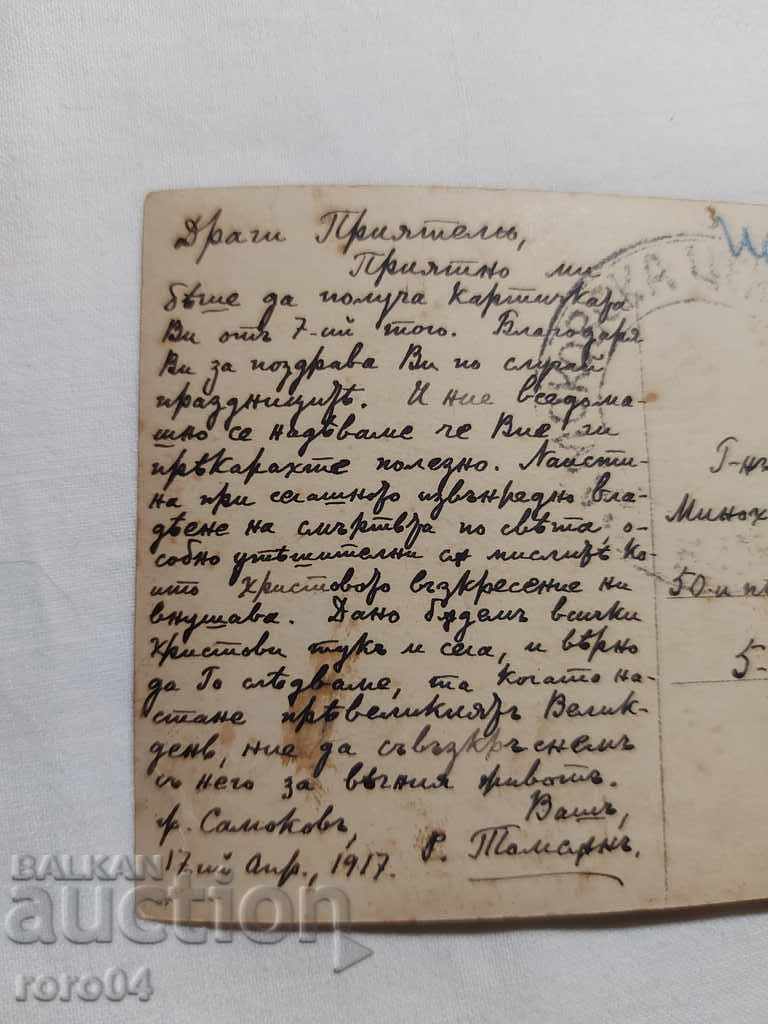 Драги Приятелю,
Приятно ми
бѣше да получа картичката
Ви отъ 7-ий того. Благодаря
Ви за поздрава Ви по случай
празницитѣ. И ние вседома-
шно се надѣваме че Вие ги
прѣкарахте полезно. Наисти-
на при сегашното извънредно вла-
дѣене на смъртьта по свѣта, о-
собно утѣшителни сѫ мислитѣ ко-
ито Христовото възкресение ни
внушава. Дано бѫдемъ всички
Христови тукъ и сега, и вѣрно
да Го слѣдваме, та когато на-
стане прѣвеликиятъ Велик-
день, ние да съвъзкръснемъ
съ него за вѣчния животъ.
гр. Самоковъ, Вашъ,
17-ий Апр., 1917. Р. Томсънъ.
Г-нъ
Минох
50-и п
5-
BALKAN
auction
roro04